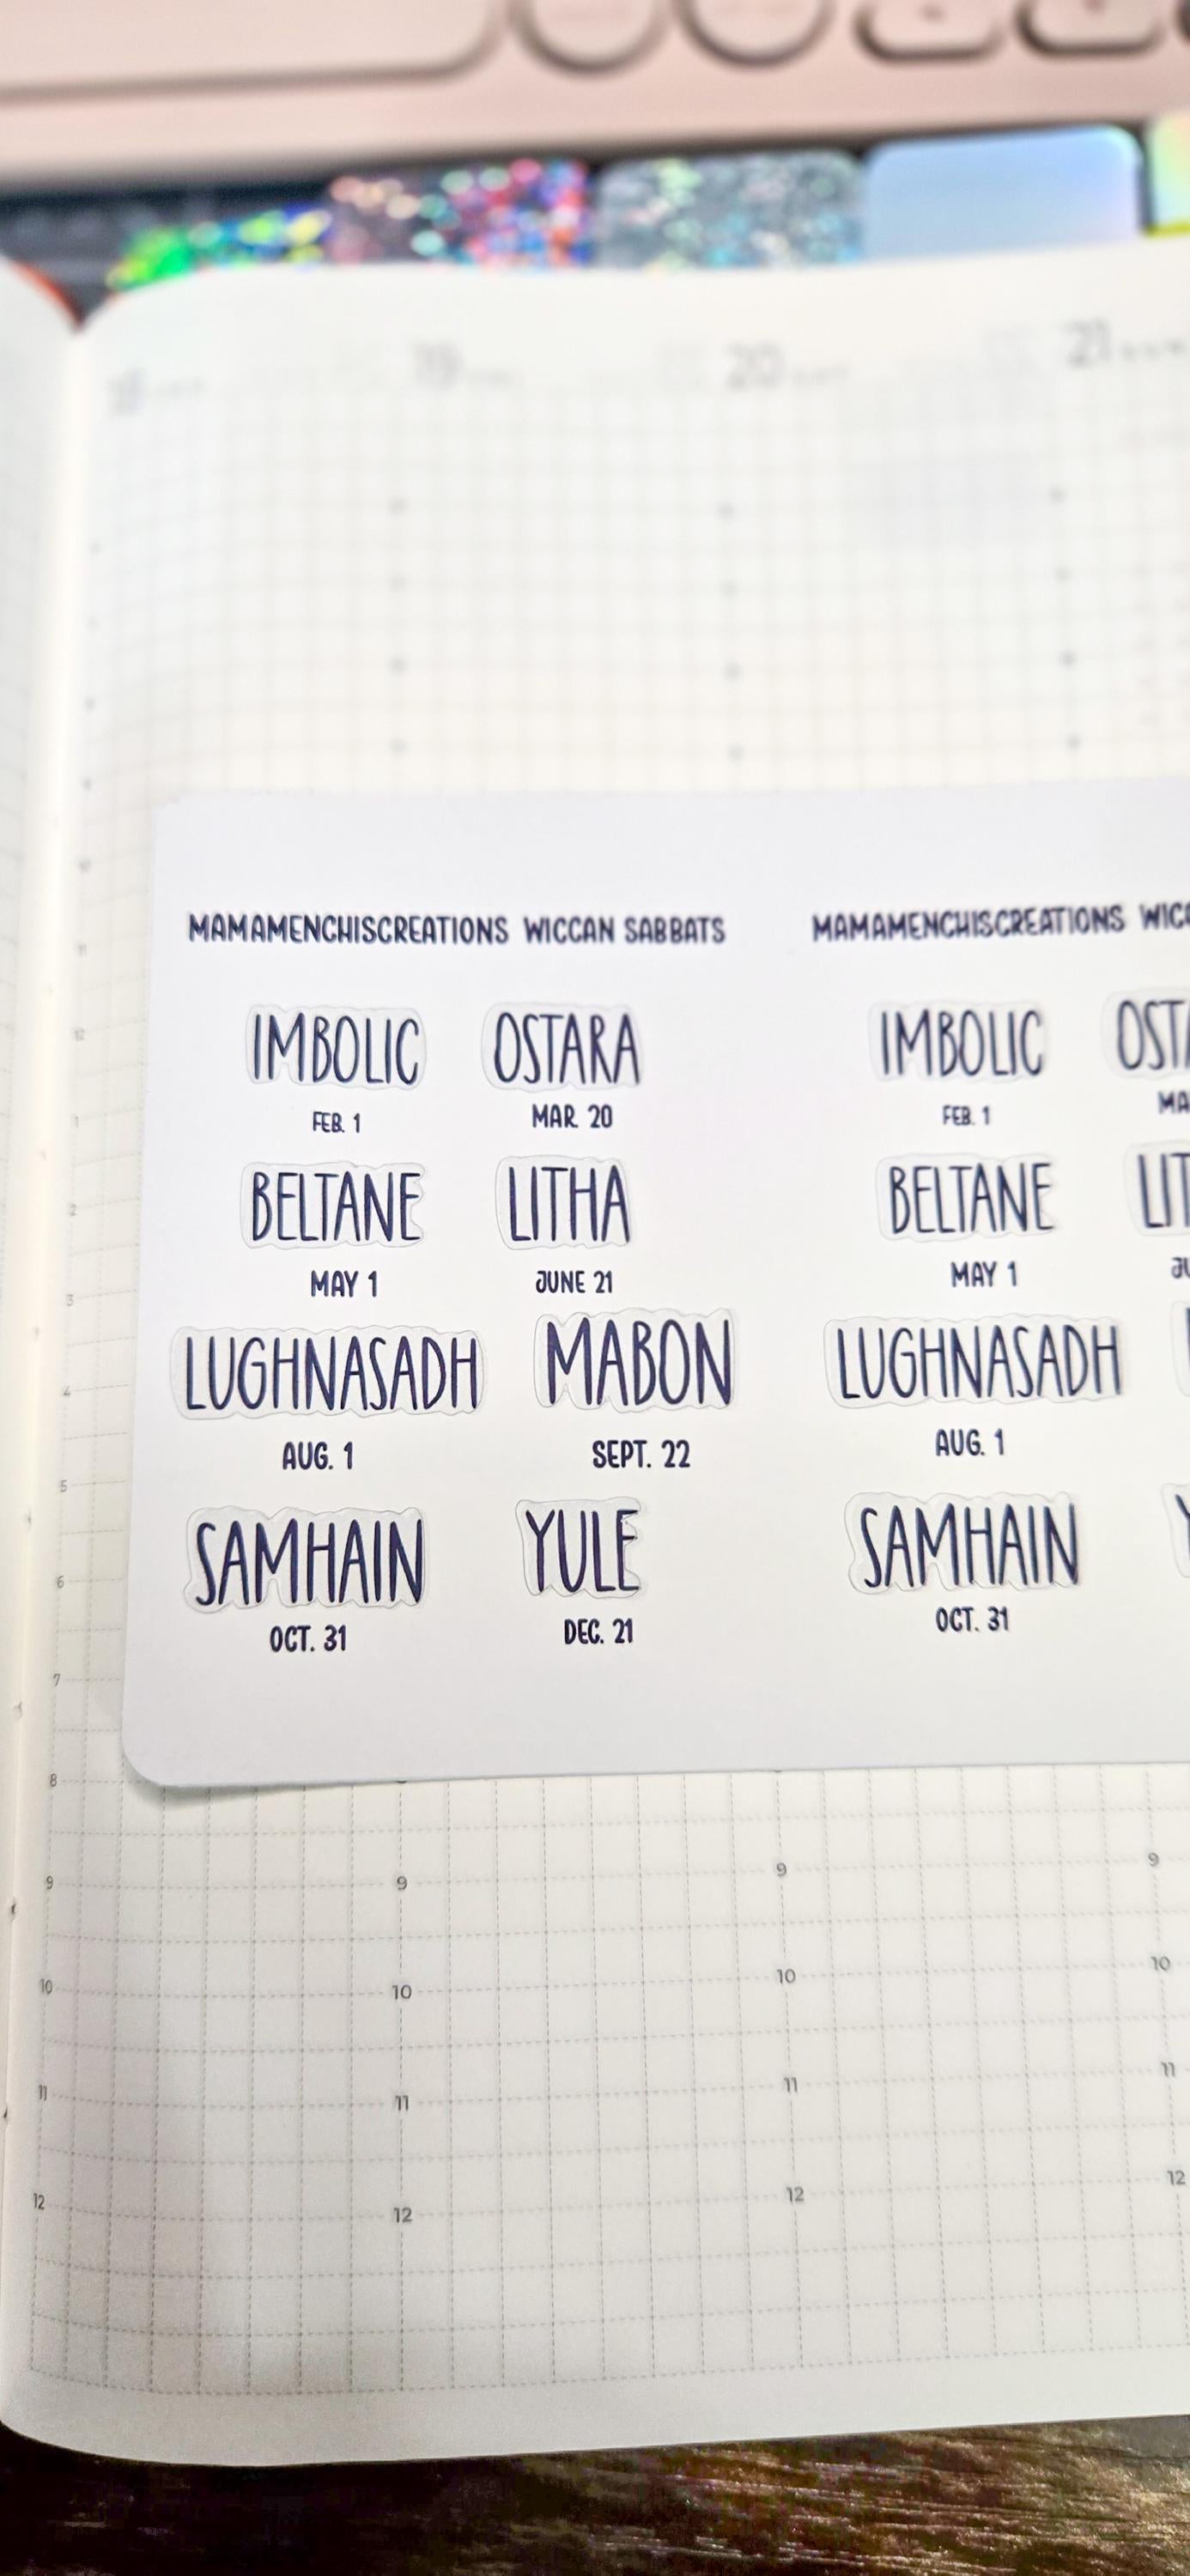 19
20
21
MAMAMENCHISCREATIONS WICCAN SABBATS
MAMAMENCHISCREATIONS
IMBOLIC OSTARA
IMBOLIC
FEB. 1 MAR. 20
FEB. 1
BELTANE LITHA
BELTANE
MAY 1 JUNE 21
MAY 1
LUGHNASADH MABON
LUGHNASADH
AUG. 1 SEPT. 22
AUG. 1
SAMHAIN YULE
SAMHAIN
OCT. 31 DEC. 21
OCT. 31
11
12
1
2
3
4
5
6
7
8
9 9 9 9
10 10 10 10
11 11 11 11
12 12 12 12